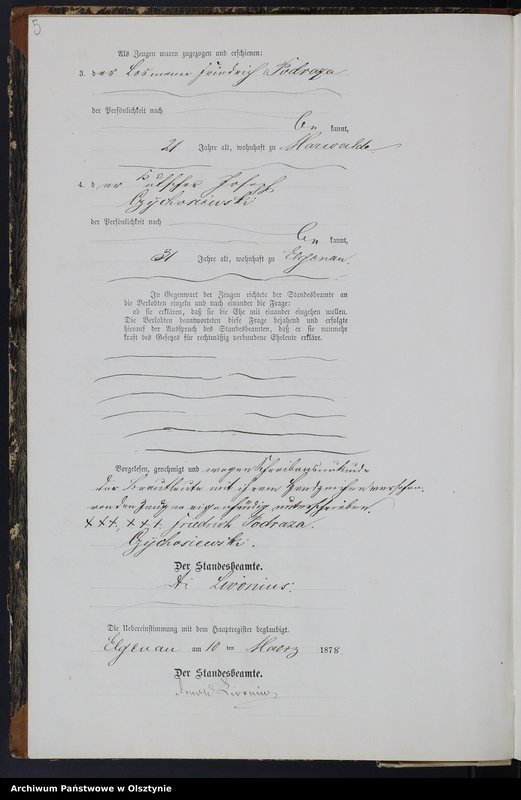 5
Als Zeugen waren zugezogen und erschienen:
3. der Losmann Friedrich Podraza
der Persönlichkeit nach
be kannt,
21 Jahre alt, wohnhaft zu Marwalde
4. der Kutscher Joseph
Czychosiewski
der Persönlichkeit nach
be kannt,
31 Jahre alt, wohnhaft zu Elgenau.
In Gegenwart der Zeugen richtete der Standesbeamte an
die Verlobten einzeln und nach einander die Frage:
ob sie erklären, daß sie die Ehe mit einander eingehen wollen.
Die Verlobten beantworteten diese Frage bejahend und erfolgte
hierauf der Ausspruch des Standesbeamten, daß er sie nunmehr
kraft des Gesetzes für rechtmäßig verbundene Eheleute erkläre.
Vorgelesen, genehmigt und wegen Schreibensunkunde
der Brautleute mit ihrem Handzeichen versehen.
von den Zeugen eigenhändig unterschrieben.
+++, +++. Friedrich Podraza.
Czychosiewski.
Der Standesbeamte.
Livonius.
Die Uebereinstimmung mit dem Hauptregister beglaubigt.
Elgenau am 10 ten Maerz 1878.
Der Standesbeamte.
Arnold Livonius
Archiwum Państwowe w Olsztynie